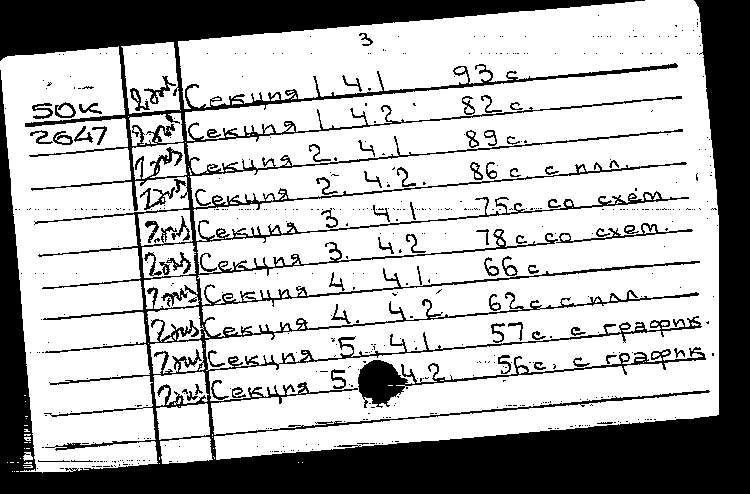 3
2 экз Секция 1. Ч.1 93 с.
50К
2 экз Секция 1. Ч.2. 82 с.
2647
2 экз Секция 2. Ч.1. 89 с.
2 экз Секция 2. Ч.2. 86 с. с илл.
2 экз Секция 3. Ч.1 75 с. со схем.
2 экз Секция 3. Ч.2 78 с. со схем.
2 экз Секция 4. Ч.1. 66 с.
2 экз Секция 4. Ч.2. 62 с. с илл.
2 экз Секция 5. Ч.1. 57 с. с график.
2 экз Секция 5. Ч.2. 56 с. с график.